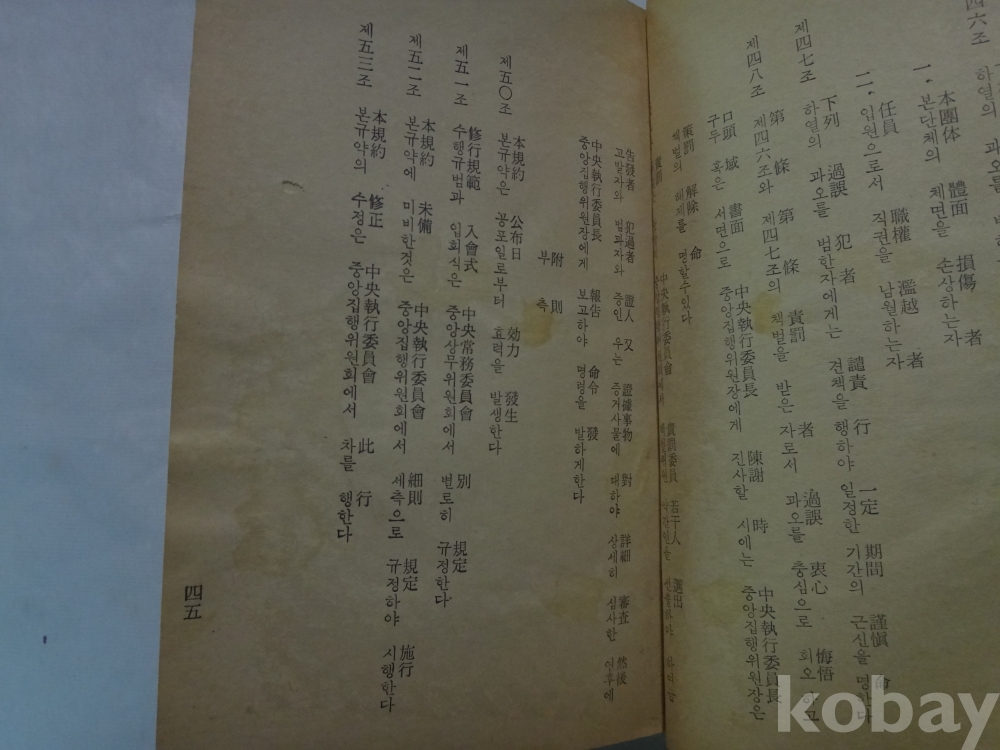 四六조 하열의 과오를
本團体 體面 損傷 者
一. 본단체의 체면을 손상하는자
任員 職權 濫越 者
二. 임원으로서 직권을 남월하는자
下列 過誤 犯 者 譴責 行 一定 期間 謹愼 命
제四七조 하열의 과오를 범한자에게는 견책을 행하야 일정한 기간의 근신을 명한다
第 條 第 條 責罰 者 過誤 衷心 悔悟
제四八조 제四六조와 제四七조의 책벌을 받은 자로서 과오를 충심으로 회오하고
口頭 域 書面 中央執行委員長 陳謝 時 中央執行委員長
구두 혹은 서면으로 중앙집행위원장에게 진사할 시에는 중앙집행위원장은
解除 命
책벌의 해제를 명할수있다
中央執行委員會 責罰委員 若干人 選出
告發者 犯過者 證人 又 證據事物 對 詳細 審査 然後
고발자와 범과자와 증인 우는 증거사물에 대하야 상세히 심사한 연후에
中央執行委員長 報告 命令 發
중앙집행위원장에게 보고하야 명령을 발하게한다
附 則
부 측
本規約 公布日 効力 發生
제五〇조 본규약은 공포일로부터 효력을 발생한다
修行規範 入會式 中央常務委員會 別 規定
제五一조 수행규범과 입회식은 중앙상무위원회에서 별로히 규정한다
本規約 未備 中央執行委員會 細則 規定 施行
제五二조 본규약에 미비한것은 중앙집행위원회에서 세측으로 규정하야 시행한다
本規約 修正 中央執行委員會 此 行
제五三조 본규약의 수정은 중앙집행위원회에서 차를 행한다
四五
kobay